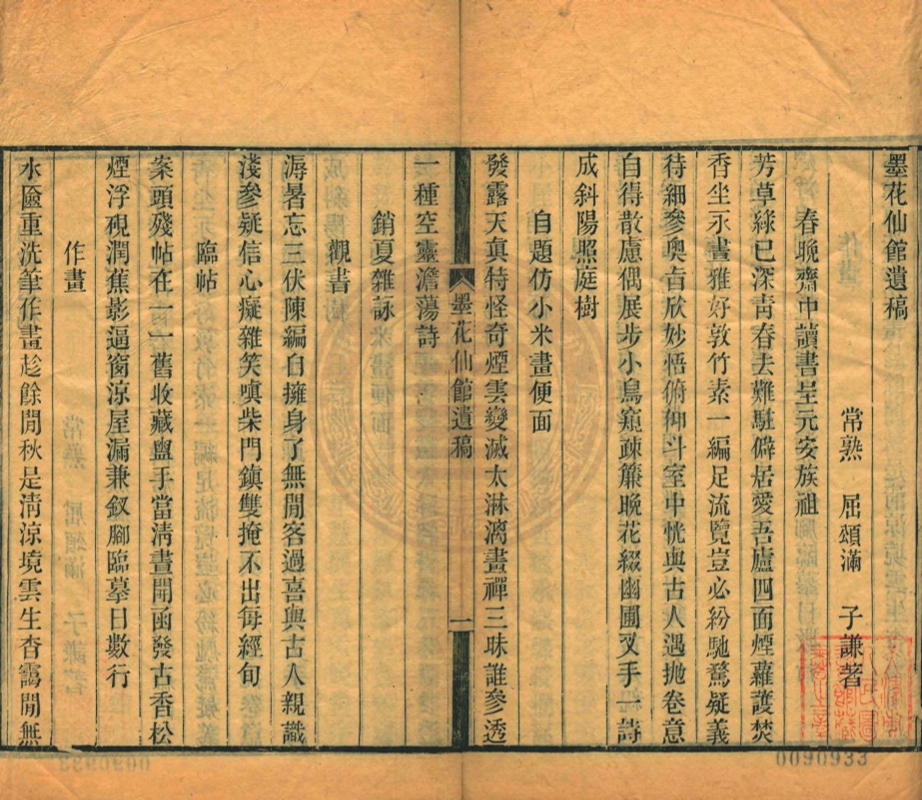 墨花仙館遺稿
常熟 屈頌滿 子謙著
春晚齋中讀書呈元安族祖
芳草綠已深靑春去難駐僻居愛吾廬四面煙蘿護焚
香坐永晝雅好敦竹素一編足流覽豈必紛馳騖疑義
待細參奧㫖欣妙悟俯仰斗室中恍與古人遇抛卷意
自得散慮偶展步小鳥窺疎簾晚花綴幽圃叉手一詩
成斜陽照庭樹
自題仿小米畫便面
發露天真特怪奇煙雲變滅太淋漓畫禪三昧誰參透
墨花仙館遺稿
一
一種空靈澹蕩詩
銷夏雜詠
觀書
溽暑忘三伏陳編自擁身了無閒客過喜與古人親識
淺參疑信心癡雜笑嗔柴門鎮雙掩不出每經旬
臨帖
案頭殘帖在一一舊收藏盥手當淸晝開函發古香松
煙浮硯潤蕉影逼窗涼屋漏兼釵腳臨摹日數行
作畫
水匳重洗筆作畫趁餘閒秋是淸涼境雲生杳靄閒無
0090933